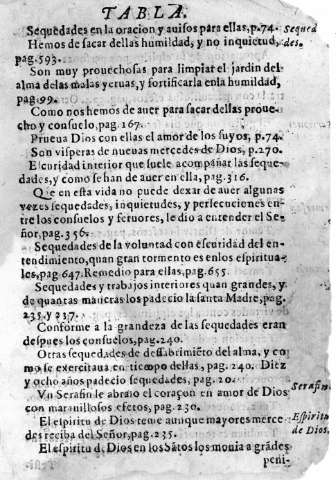 TABLA.
Sequedades en la oracion y auisos para ellas, p.74. Sequed
Hemos de sacar dellas humildad, y no inquietud, des.
pag.593.
Son muy prouechosas para limpiar el jardin del
alma de las malas yeruas, y fortificarla en la humildad,
pag.99.
Como nos hemos de auer para sacar dellas proue-
cho y consuelo, pag.167.
Prueua Dios con ellas el amor de los suyos, p.74.
Son visperas de nueuas mercedes de Dios, p.270.
Escuridad interior que suele acompañar las seque-
dades, y como se han de auer en ella, pag.316.
Que en esta vida no puede dexar de auer algunas
vezes sequedades, inquietudes, y persecuciones en-
tre los consuelos y feruores, le dio a entender el Se-
ñor, pag.356.
Sequedades de la voluntad con escuridad del en-
tendimiento, quan gran tormento es en los espiritua-
les, pag 647. Remedio para ellas, pag.655.
Sequedades y trabajos interiores quan grandes, y
de quantas maneras los padecio la santa Madre, pag.
235. y 237.
Conforme a la grandeza de las sequedades eran
despues los consuelos, pag.240.
Otras sequedades de dessabrimiẽto del alma, y co-
mo se exercitaua en tiempo dellas, pag. 240. Diez
y ocho años padecio sequedades, pag. 20.
Vn Serafin le abraso el coraçon en amor de Dios Serafin.
con marauillosos efetos, pag.230.
El espiritu de Dios teme aunque mayores merce- Espiritu
des reciba del Señor, pag.235. de Dios.
El espiritu de Dios en los Sãtos los mouia a grãdes
peni-